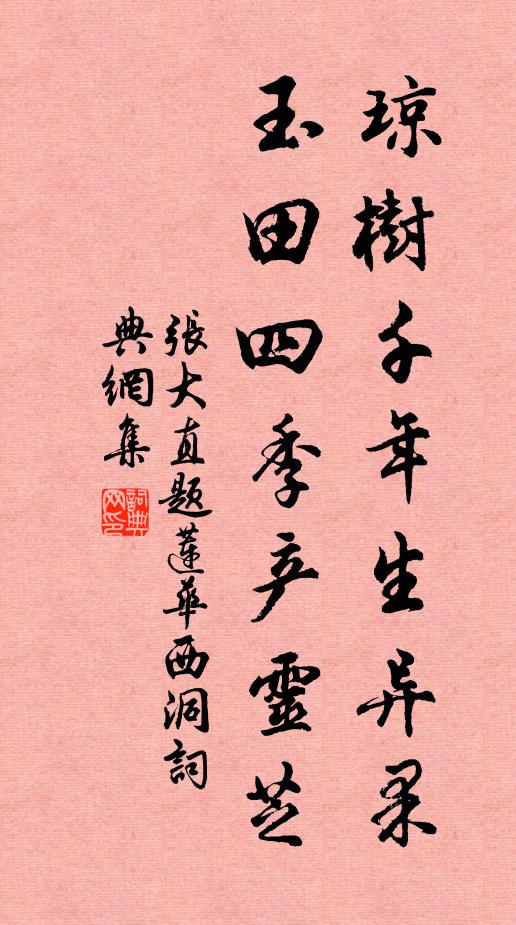 琼樹千年生异果
玉田四季产靈芝
張大直題蓮華西洞詞
典網集
詞典网印